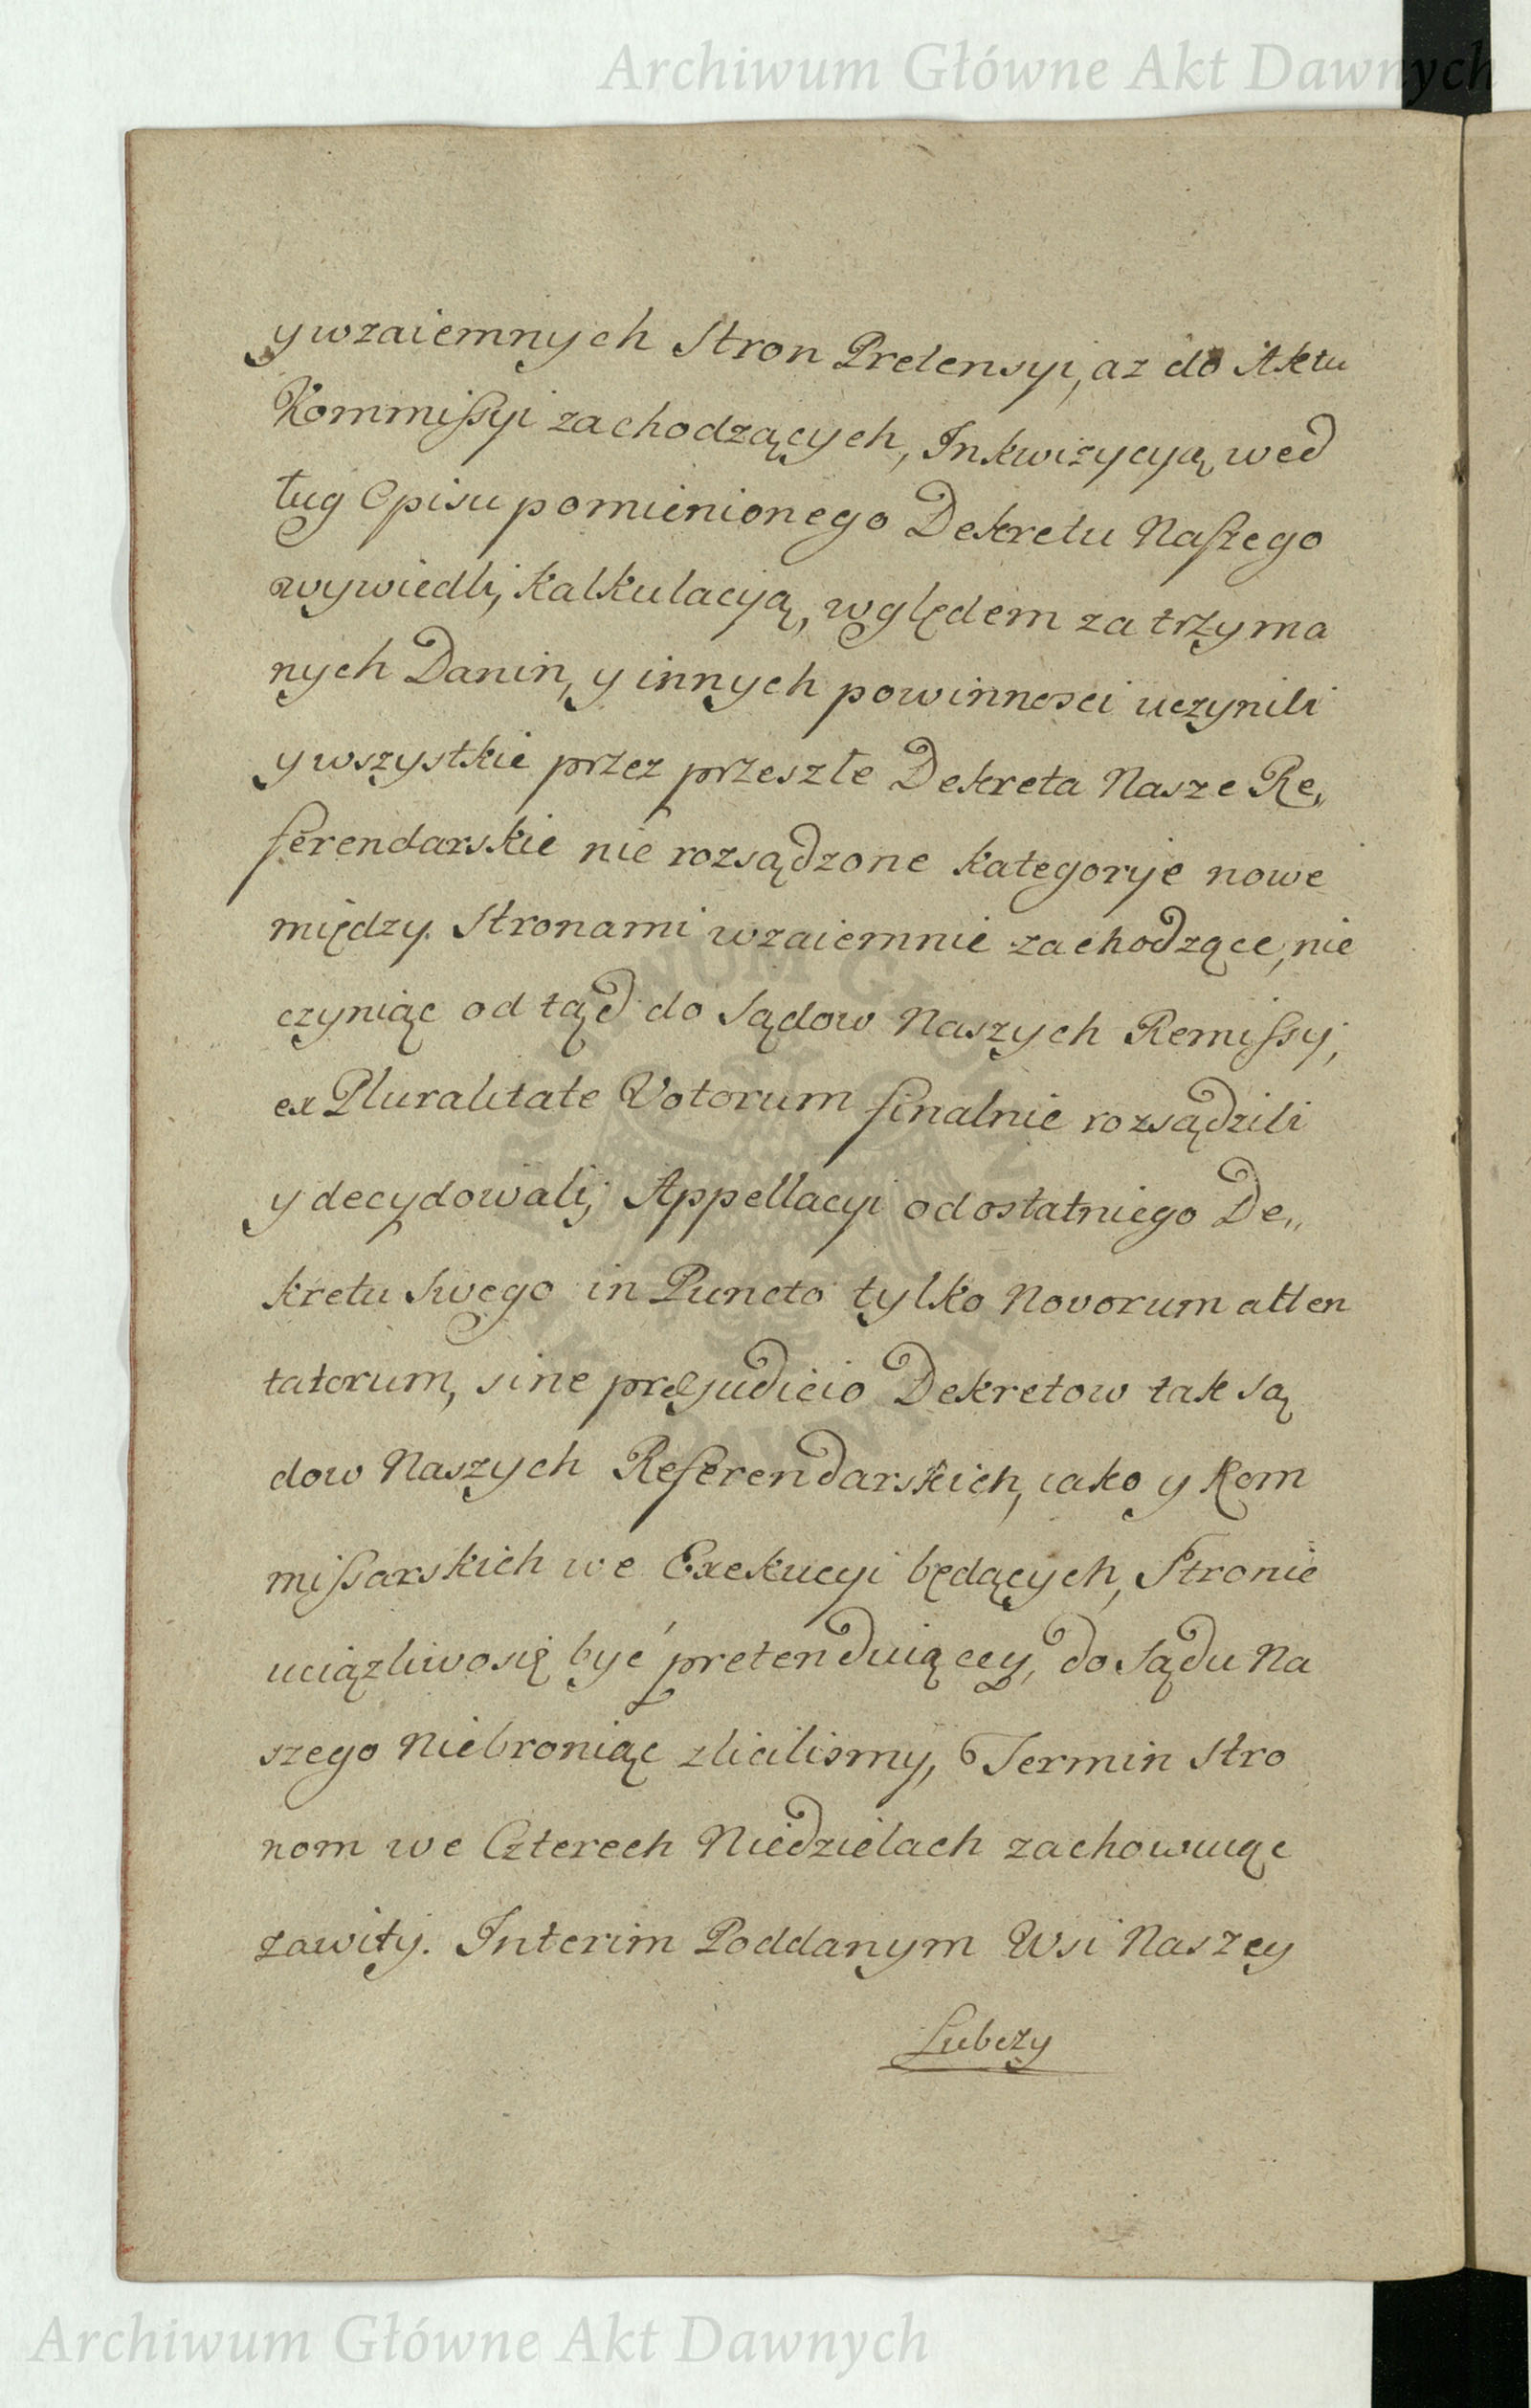 Archiwum Główne Akt Dawnych
y wzaiemnych Stron Pretensyi, az do Aktu
Kommissyi zachodzących, Inkwizycyą wed
ług Opisu pomienionego Dekretu Naszego
wywiedli, kalkulacyą, względem zatrzyma
nych Danin, y innych powinnosci uczynili
y wszystkie przez przeszłe Dekreta Nasze Re„
ferendarskie nie rozsądzone kategoryje nowe
między Stronami wzaiemnie zachodzące, nie
czyniąc od tąd do Sądow Naszych Remissy,
ex Pluralitate Votorum finalnie rozsądzili
y decydowali, Appellacyi od ostatniego De„
kretu swego in Puncto tylko Novorum atten
tatorum, sine præjudicio Dekretow tak Są
dow Naszych Referendarskich, iako y Kom
missarskich we Exekucyi będących, Stronie
uciązliwo się być pretenduiącey, do Sądu Na
szego niebroniąc zlicilismy, Termin Stro
nom we Czterech Niedzielach zachowuiąc
zawity. Interim Poddanym Wsi Naszey
Lubczy
Archiwum Główne Akt Dawnych